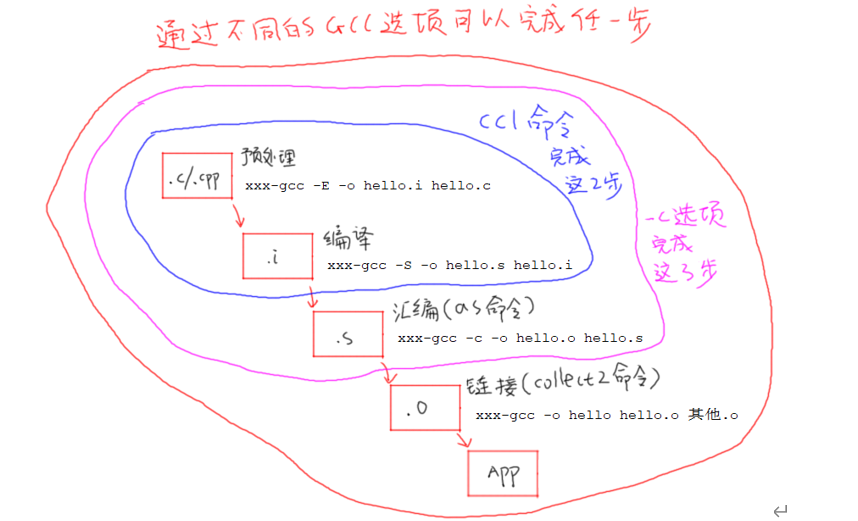 通过不同的GCC选项可以完成任一步
cc1命令
完成
这2步
预处理
.c/.cpp
xxx-gcc -E -o hello.i hello.c
-c选项
完成
这3步
编译
.i
xxx-gcc -S -o hello.s hello.i
汇编(as命令)
.s
xxx-gcc -c -o hello.o hello.s
链接(collect2命令)
.o
xxx-gcc -o hello hello.o 其他.o
APP